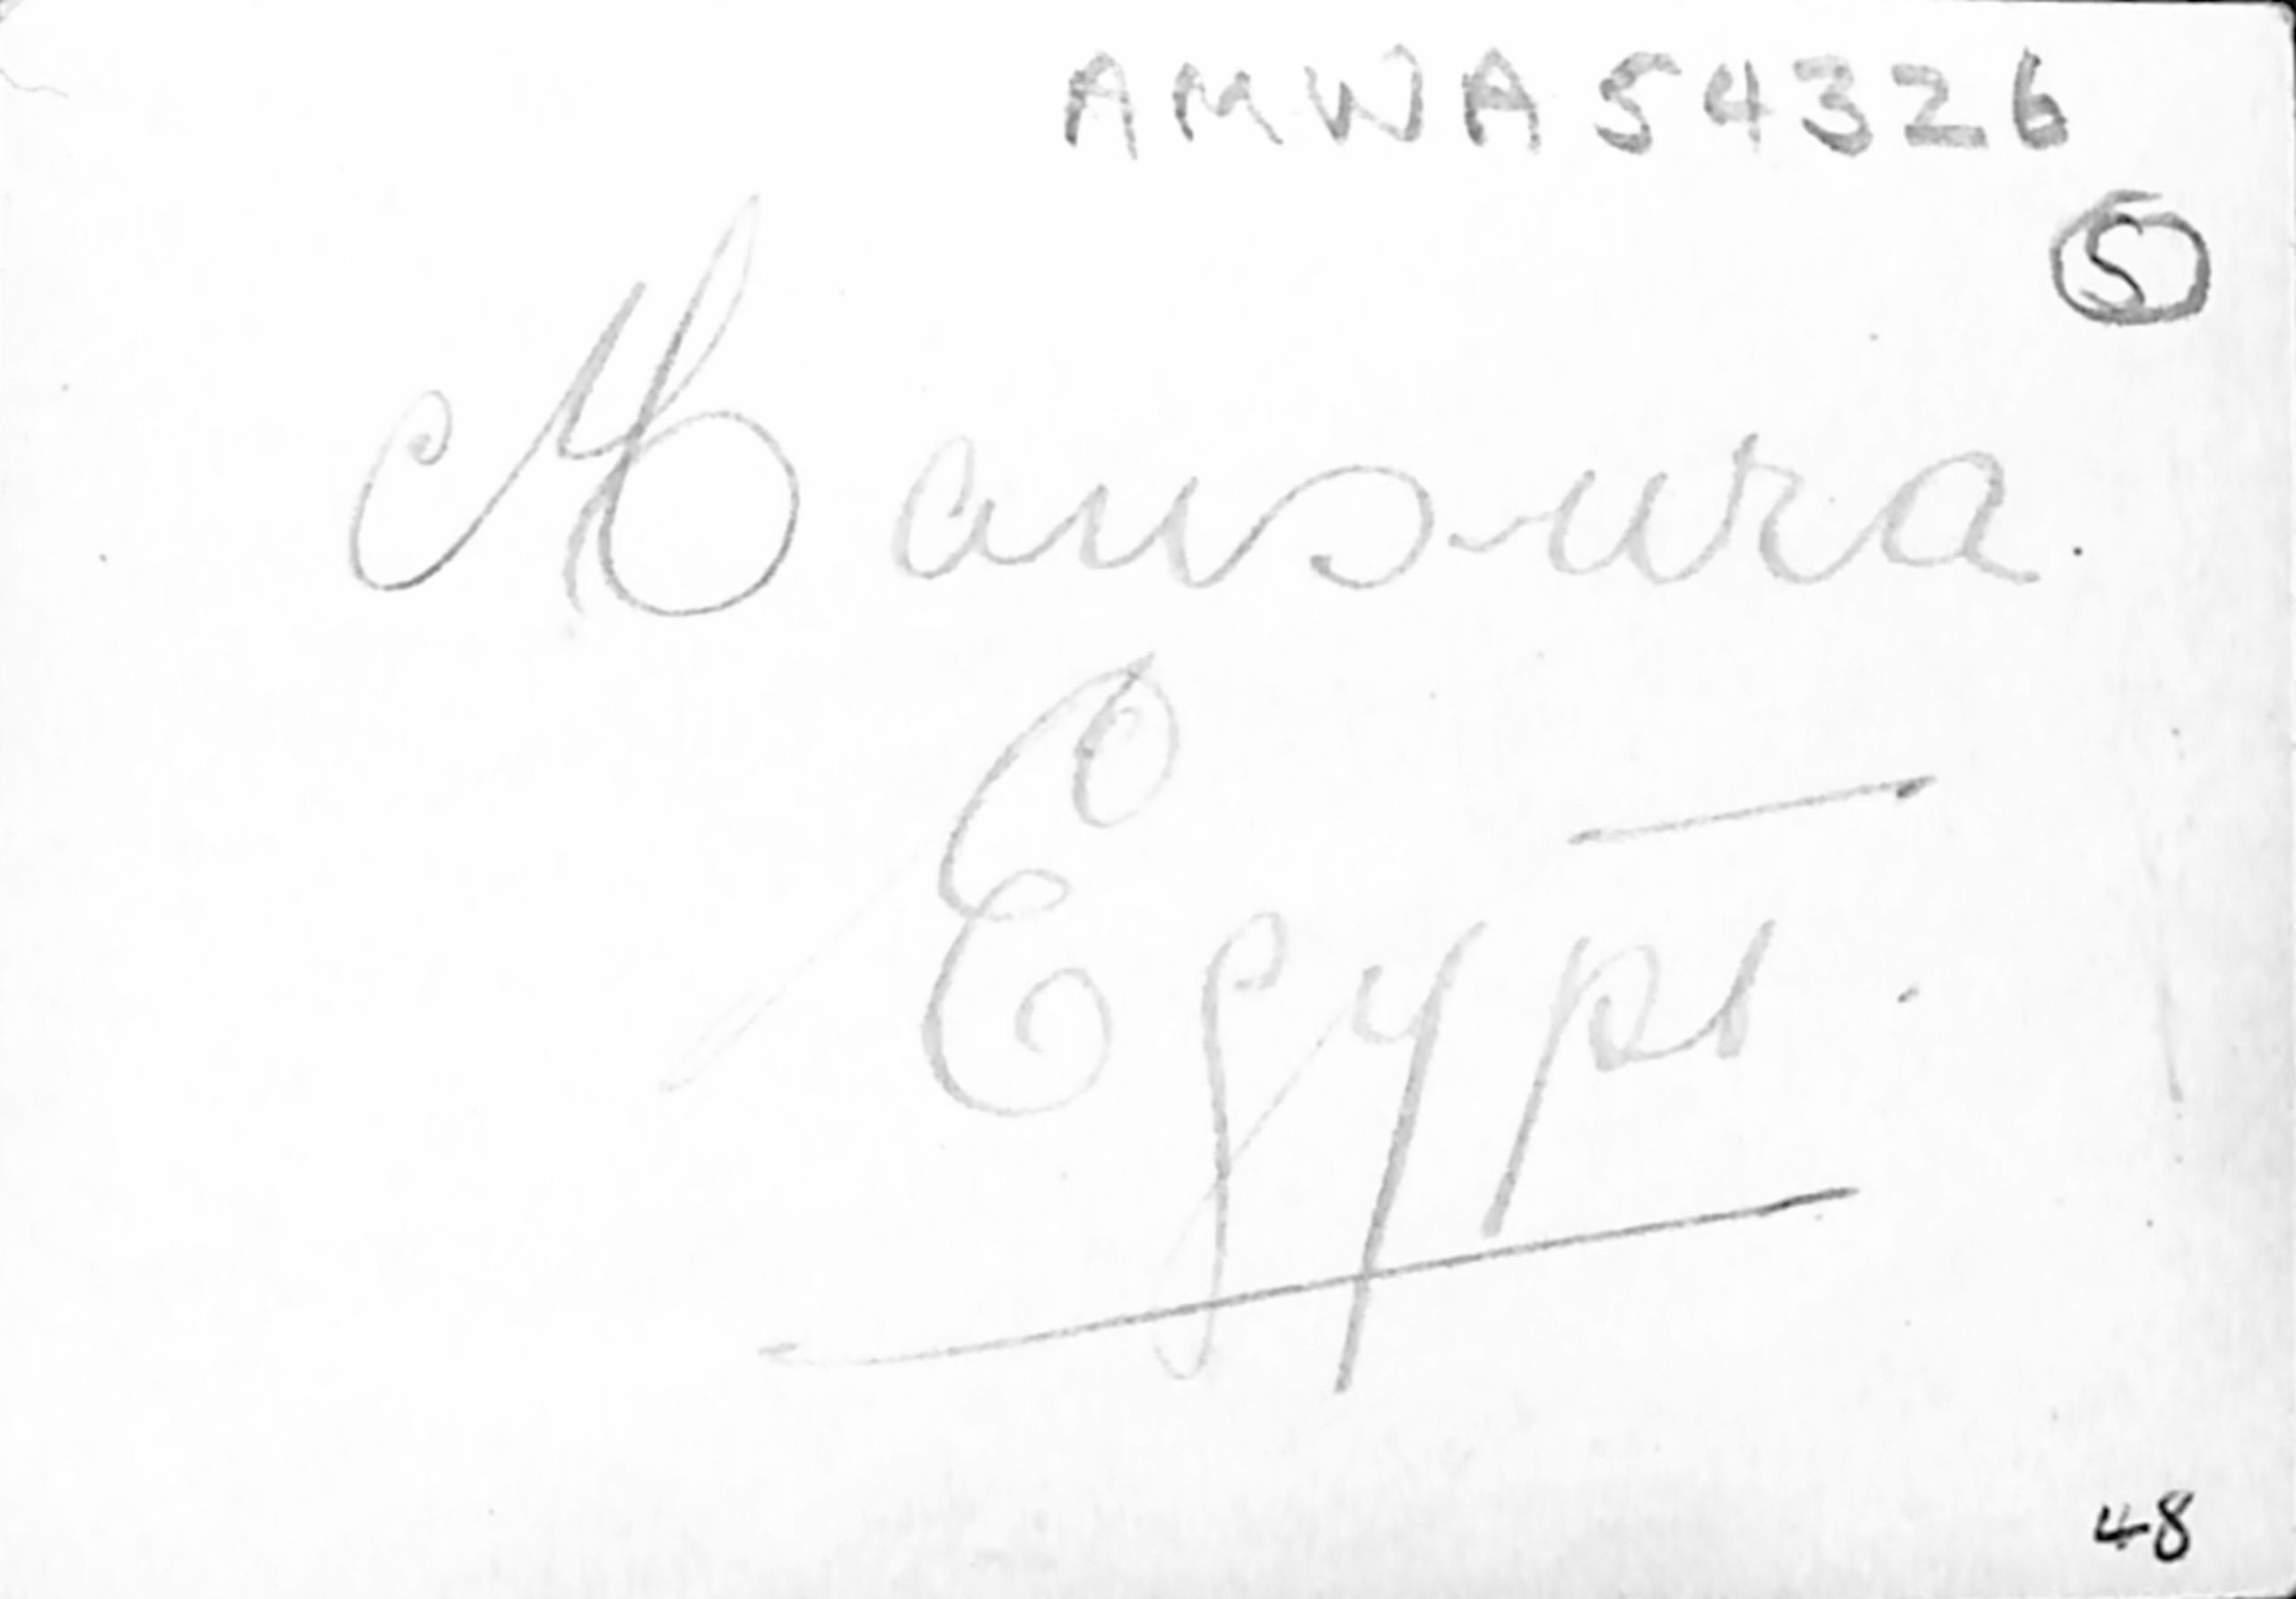 AMWA54326
5
Mansura.
Egypt.
48